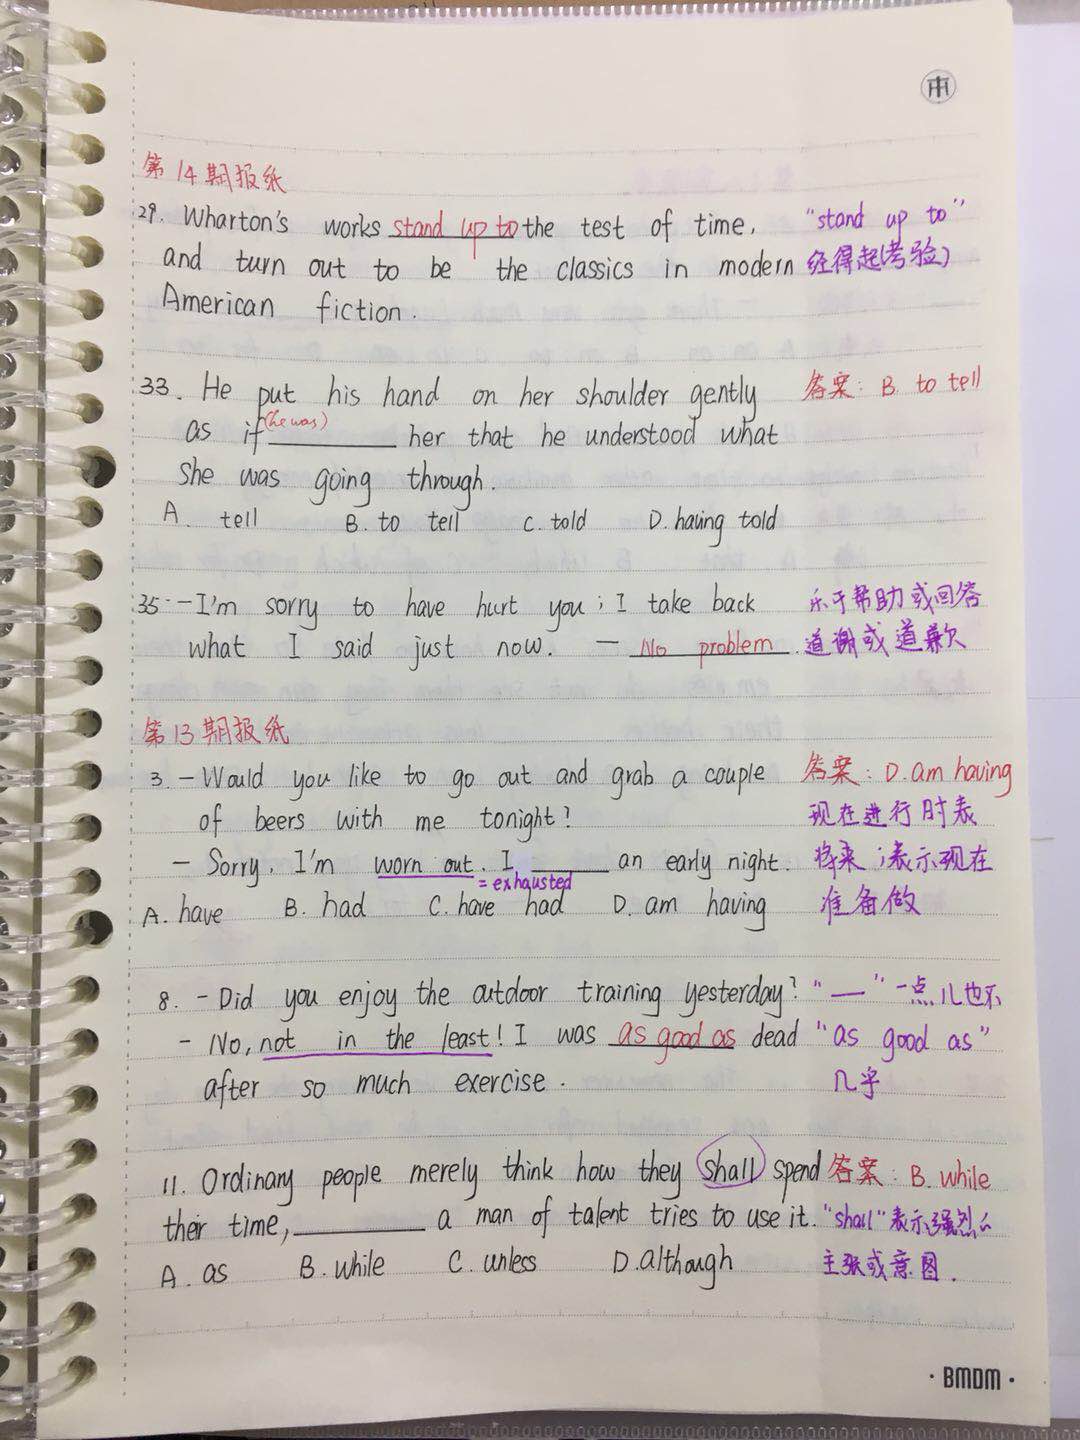 第14期报纸
29. Wharton's works stand up to the test of time, "stand up to"
and turn out to be the classics in modern 经得起(考验)
American fiction.
33. He put his hand on her shoulder gently 答案: B. to tell
(he was)
as if ________ her that he understood what
she was going through.
A. tell B. to tell C. told D. having told
35. -I'm sorry to have hurt you; I take back 乐于帮助或回答
what I said just now. - No problem. 道谢或道歉
第13期报纸
3. -Would you like to go out and grab a couple 答案: D. am having
of beers with me tonight? 现在进行时表
- Sorry, I'm worn out. I ______ an early night. 将来;表示现在
=exhausted
A. have B. had C. have had D. am having 准备做
8. -Did you enjoy the outdoor training yesterday? "—" 一点儿也不
- No, not in the least! I was as good as dead "as good as"
after so much exercise. 几乎
11. Ordinary people merely think how they shall spend 答案: B. while
their time, ________ a man of talent tries to use it. "shall"表示强烈
A. as B. while C. unless D. although 主张或意图.
· BMDM ·